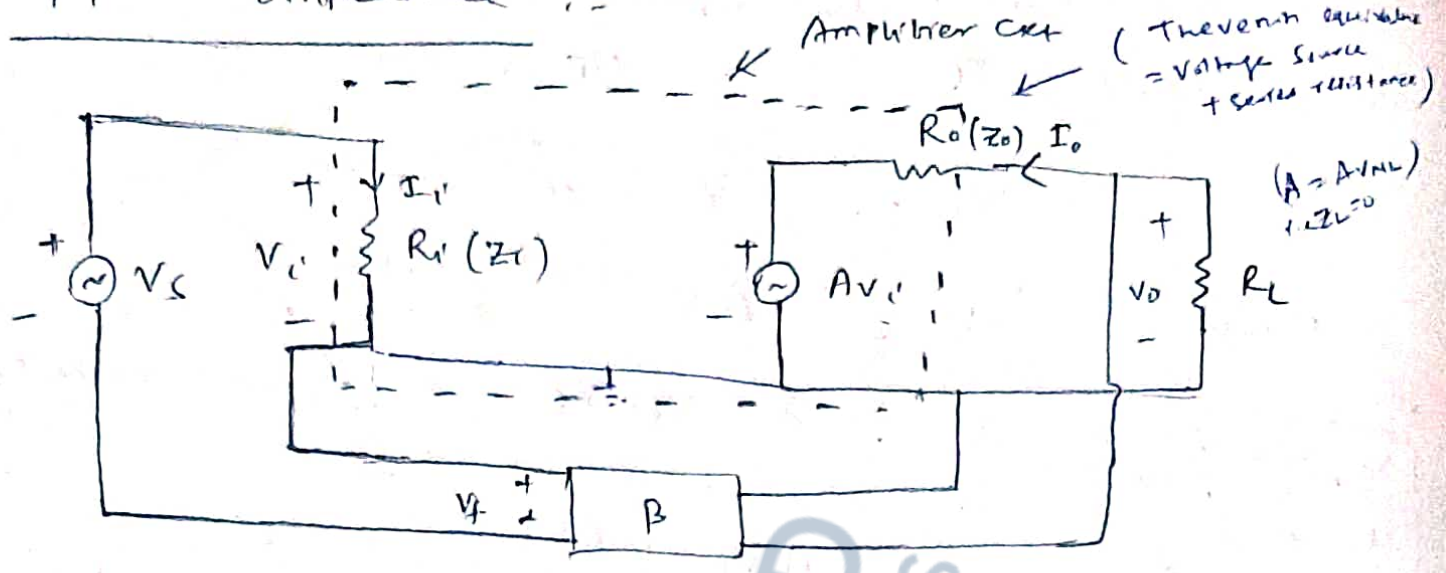 Amplifier CKt
( Thevenin equivalent
= Voltage Source
+ series resistance)
Ro (Zo) Io
(A = AVNL)
+ Ii
+
+
+
Vs
Vi
Ri (Zi)
AVi
Vo
RL
-
-
-
-
Vf
+
-
β